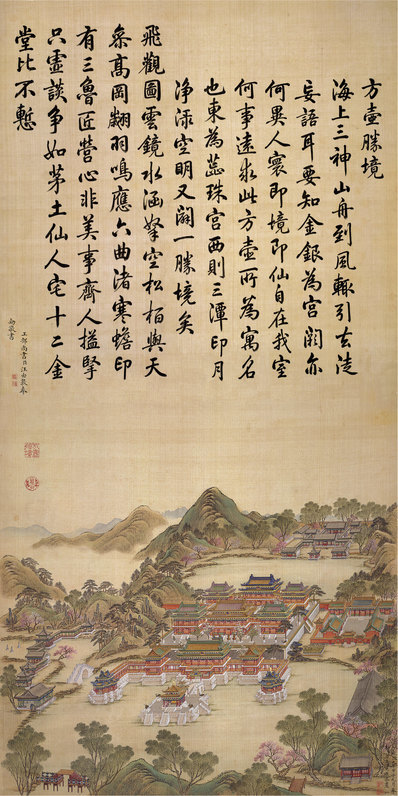 方壺勝境
海上三神山舟到風輒引去徒
妄語耳要知金銀為宮闕亦
何異人寰即境即仙自在我室
何事遠求此方壺所為寓名
也東為蕊珠宮西則三潭印月
淨淥空明又闢一勝境矣
飛觀圖雲鏡水涵拏空松柏與天
叅高岡翽羽鳴應六曲渚寒蟾印
有三魯匠營心非美事齊人搤掔
只虛談争如茅土仙人宅十二金
堂比不慙
工部尚書臣汪由敦奉
勅敬書